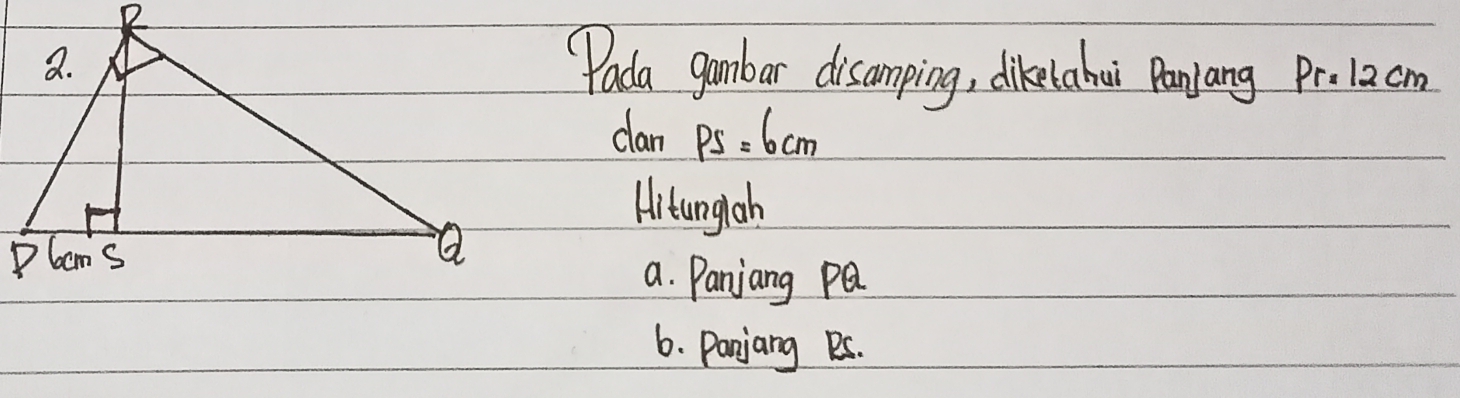 R
2.
Pada gambar disamping, diketahui Panjang Pr = 12 cm
dan PS = 6 cm
Hitunglah
P 6cm S
Q
a. Panjang PQ
b. Panjang RS.